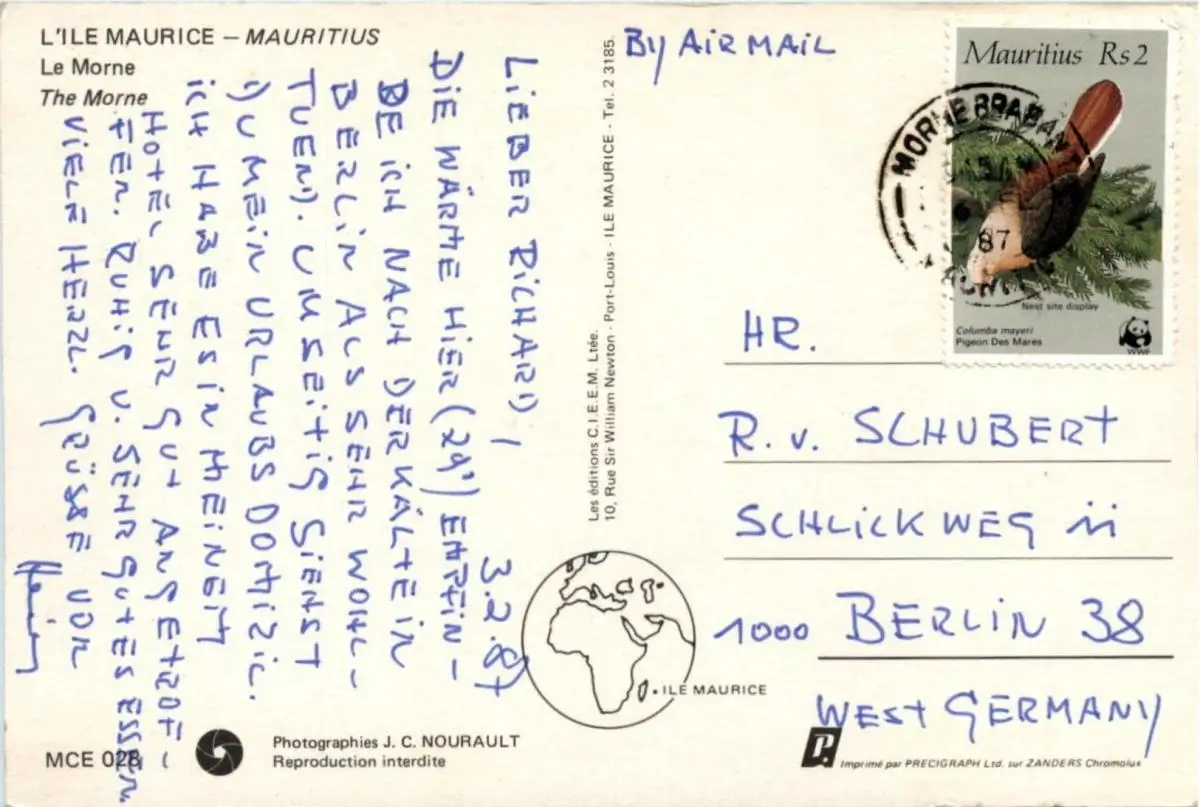 L'ILE MAURICE – MAURITIUS
Le Morne
The Morne
3.2.87
LIEBER RICHARD,
DIE WÄRME HIER (29°) EMPFIN-
DE ICH NACH DER KÄLTE IN
BERLIN ALS SEHR WOHL-
TUEND. UMSEITIG SIEHST
DU MEIN URLAUBSDOMIZIL.
ICH HABE ES IN MEINEM
HOTEL SEHR GUT ANGETROF-
FEN. RUHIG U. SEHR GUTES ESSEN.
VIELE HERZL. GRÜSSE VON
MCE 028
Photographies J. C. NOURAULT
Reproduction interdite
Les éditions C.I.E.E.M. Ltée.
10, Rue Sir William Newton - Port-Louis - ILE MAURICE - Tel. 2 3185.
ILE MAURICE
By AIR MAIL
Mauritius Rs2
MORNE BRABANT
87
Nest site display
Columba mayeri
Pigeon Des Mares
WWF
HR.
R. v. SCHUBERT
SCHLICKWEG 11
1000 BERLIN 38
WEST GERMANY
Imprimé par PRECIGRAPH Ltd. sur ZANDERS Chromolux